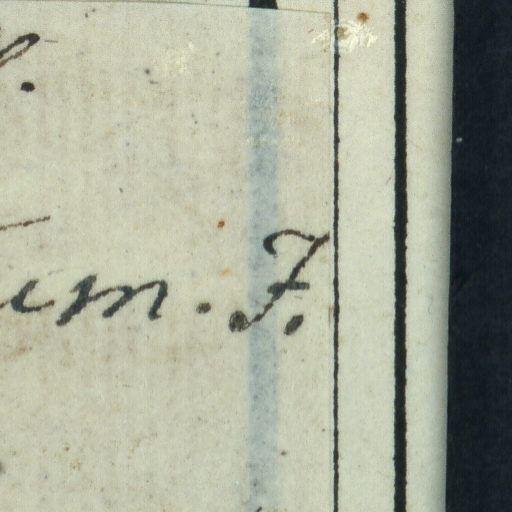 um. F.